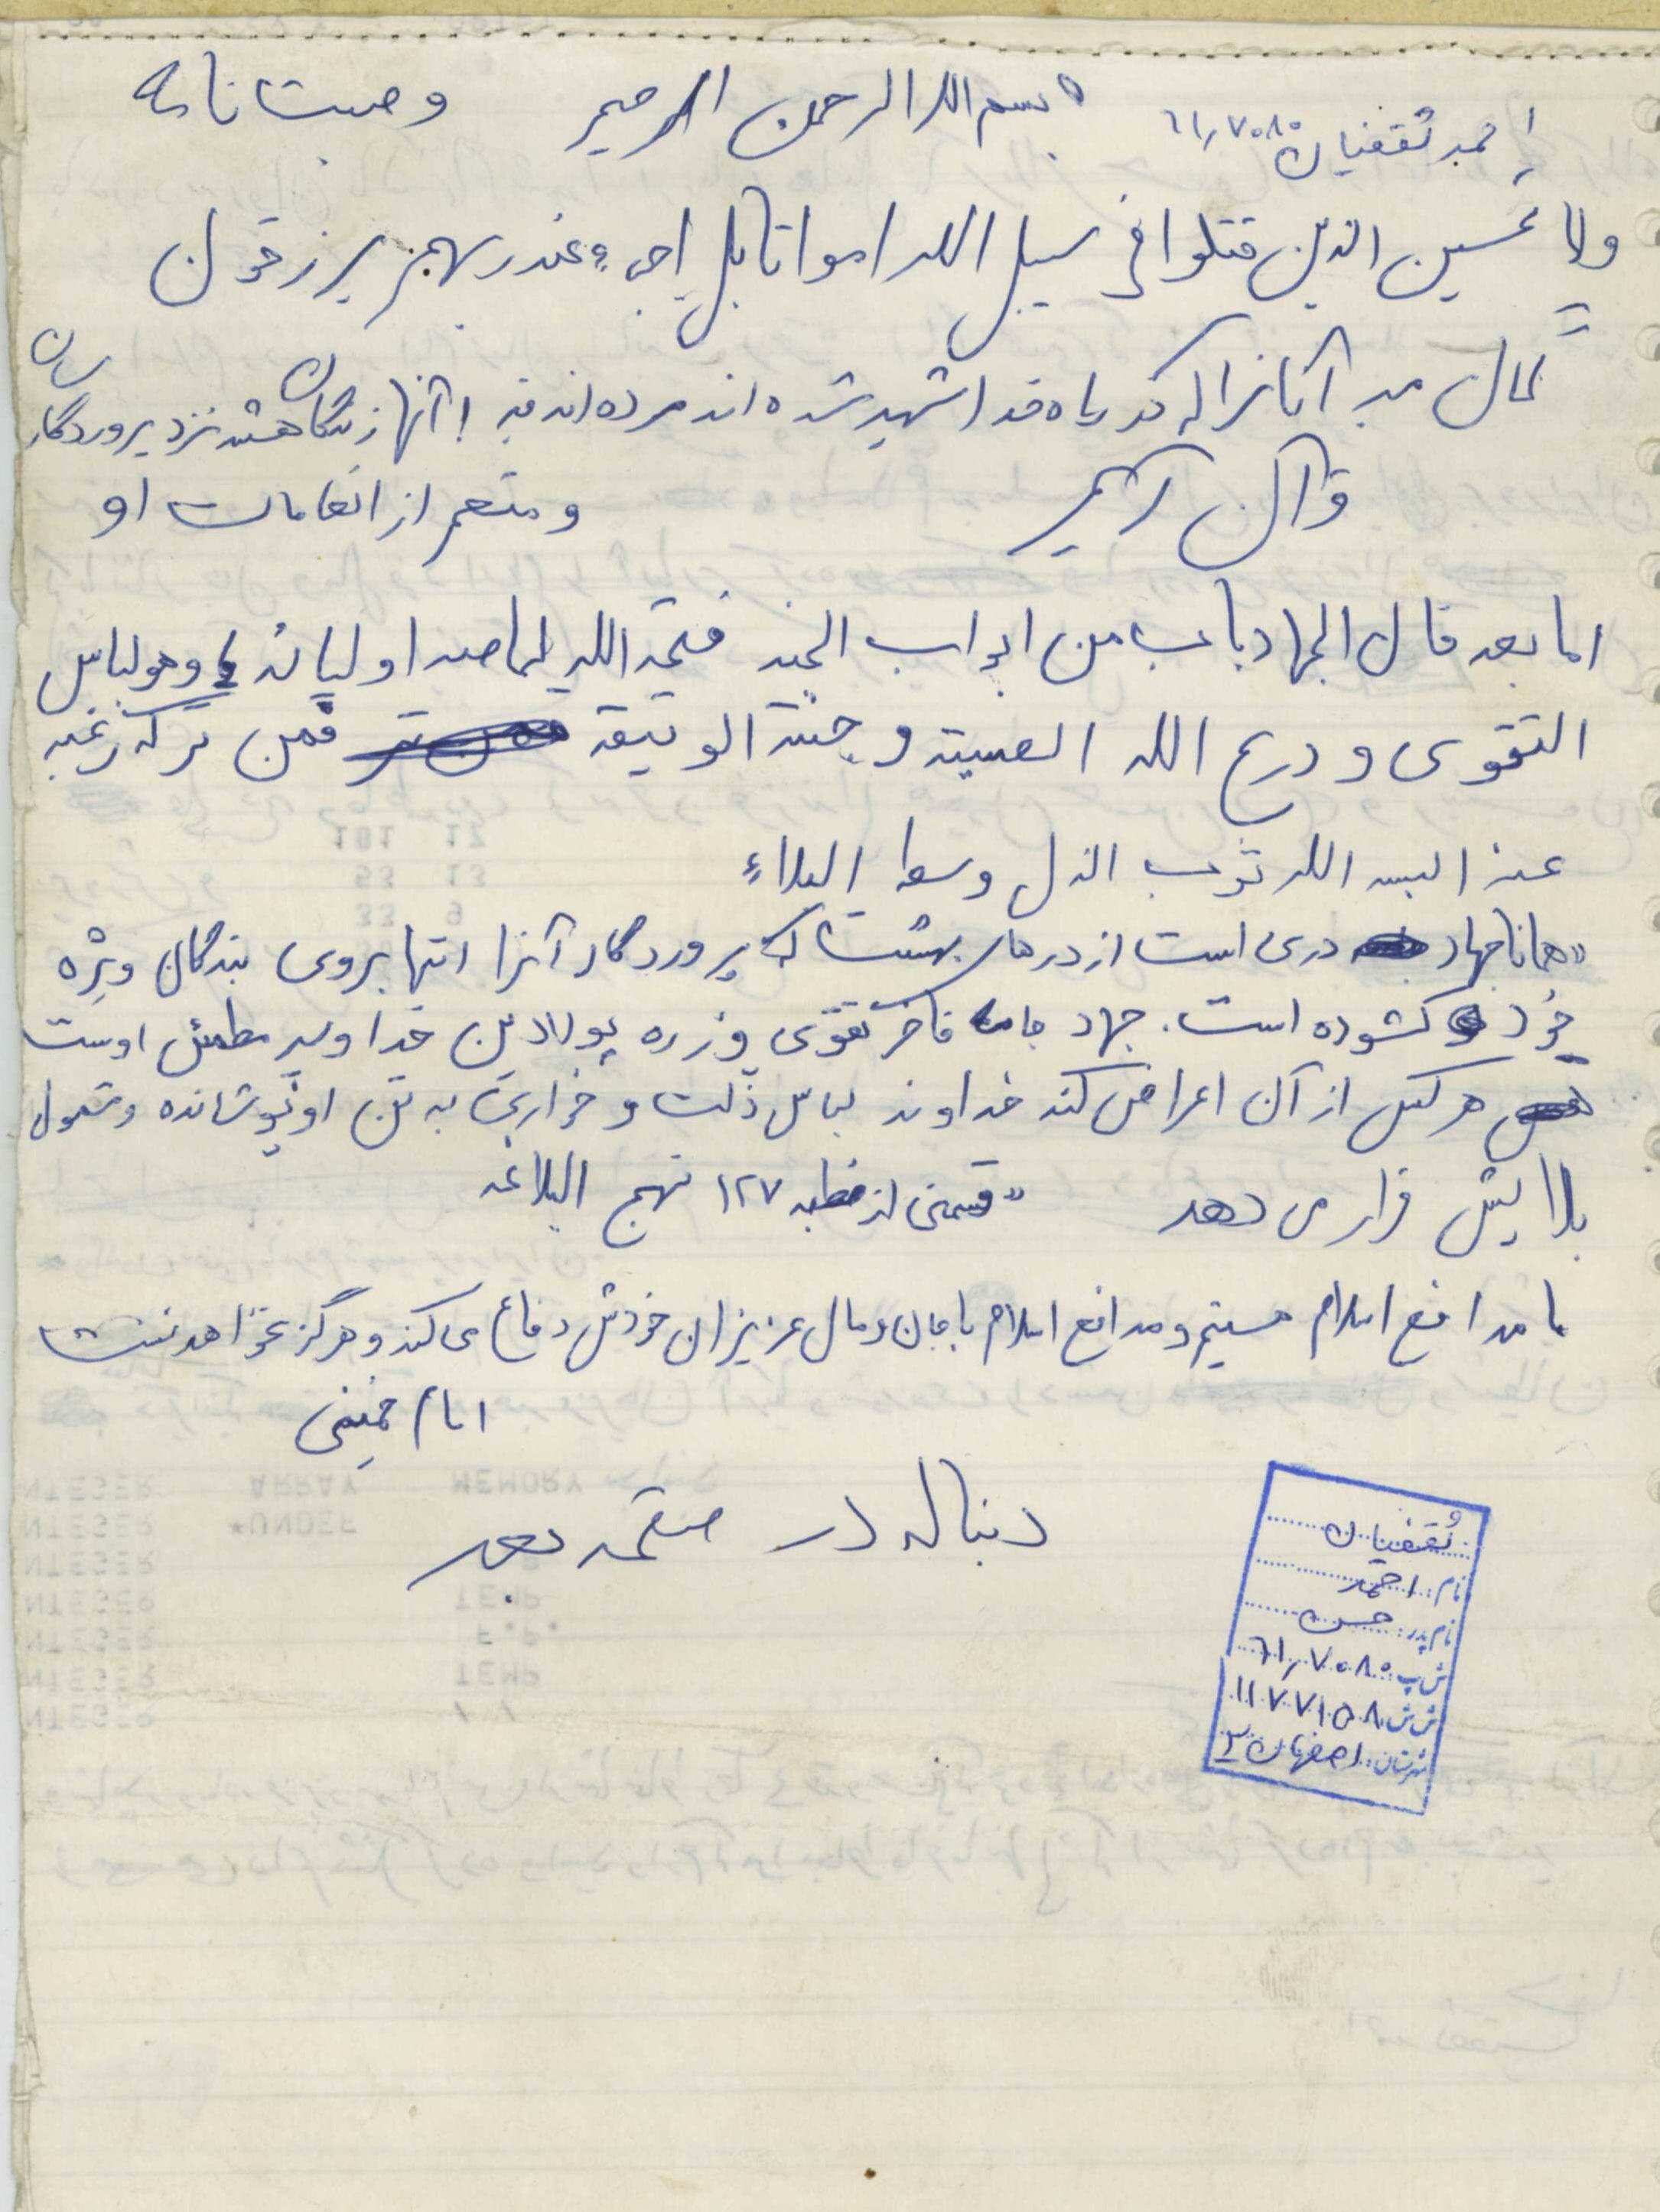 احمد ثقفیان ۶۱٫۷۰۸۰
بسم الله الرحمن الرحیم وصیت نامه
ولا تحسبن الذین قتلوا فی سبیل الله امواتا بل احیاء عند ربهم یرزقون
گمان مبر آنانرا که در راه خدا شهید شده اند مرده اند نه! آنها زندگان هستند نزد پروردگارشان
قرآن کریم و متنعم از انعامات او
اما بعد فان الجهاد باب من ابواب الجنه فتحه الله لخاصه اولیائه و هو لباس
التقوی و درع الله الحصینه و جنته الوثیقه فمن ترکه رغبه
عنه البسه الله ثوب الذل وسط البلاء
«همانا جهاد دری است از درهای بهشت که پروردگار آنرا تنها بروی بندگان ویژه
خود گشوده است. جهاد جامه فاخر تقوی و زره پولادین خدا و سپر مطمئن اوست
هر کس از آن اعراض کند خداوند لباس ذلت و خواری به تن او پوشانده و مشمول
بلایش قرار می دهد «قسمتی از خطبه ۱۲۷ نهج البلاغه
ما مدافع اسلام هستیم و مدافع اسلام با جان و مال عزیزان خودش دفاع می کند و هرگز نخواهد نشست
امام خمینی
دنباله در صفحه بعد
ثقفیان
نام: احمد
نام پدر: حسن
ش پ ۶۱٫۷۰۸۰
ش ش ۱۱۷۷۱۵۸
شهرستان: اصفهان ۳